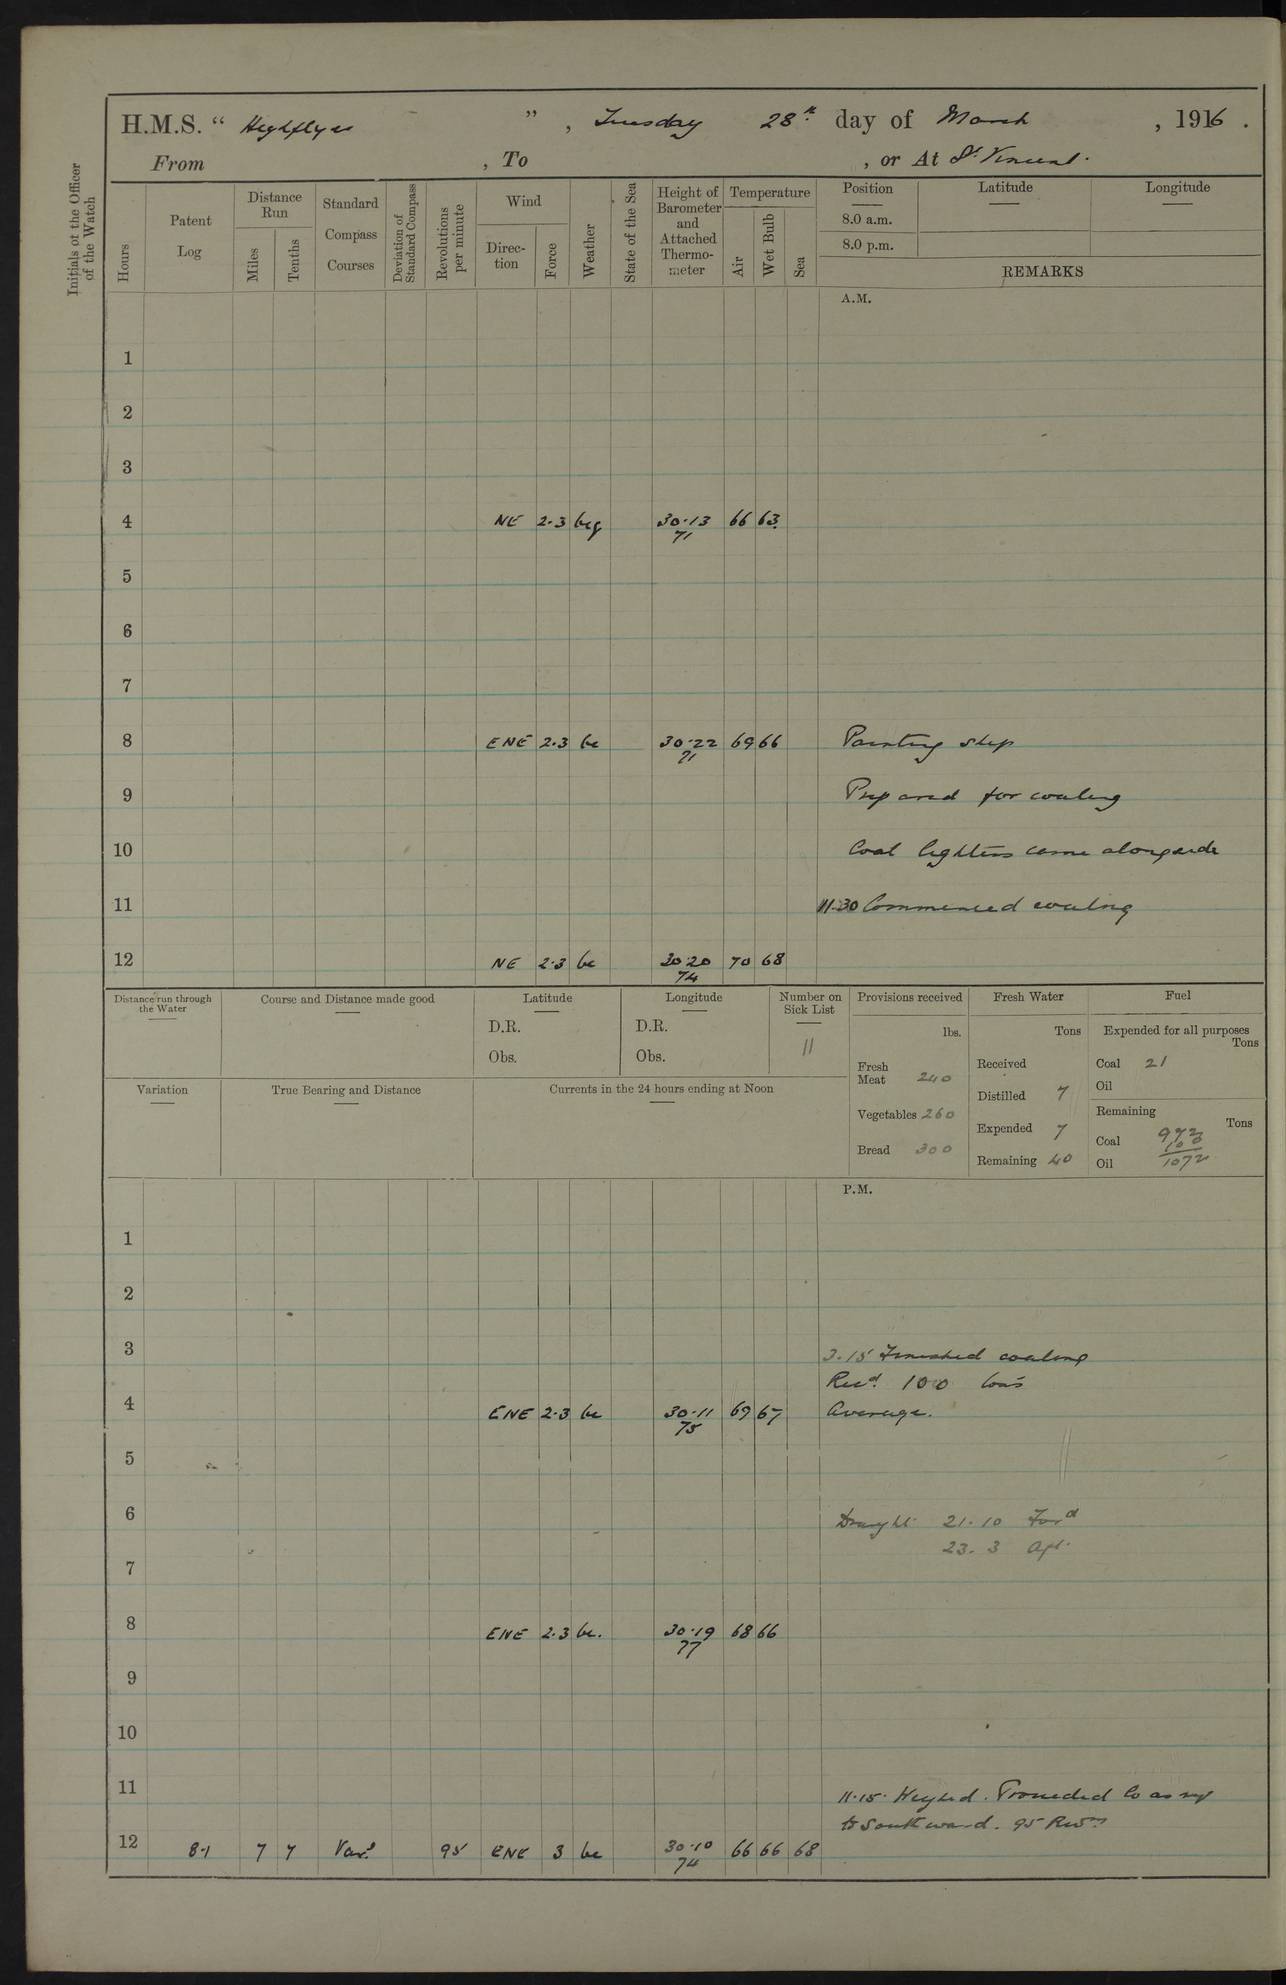 H.M.S. “ Highflyer ” , Tuesday 28th day of March , 1916 .
From , To , or At St. Vincent.
Initials of the Officer of the Watch
Hours
Patent Log
Distance Run
Miles
Tenths
Standard Compass Courses
Deviation of Standard Compass
Revolutions per minute
Wind
Direc-tion
Force
Weather
State of the Sea
Height of Barometer and Attached Thermo-meter
Temperature
Air
Wet Bulb
Sea
Position
8.0 a.m.
8.0 p.m.
Latitude
Longitude
REMARKS
A.M.
1
2
3
4 NE 2·3 bcq 30·13 66 63
71
5
6
7
8 ENE 2·3 bc 30·22 69 66 Painting ship
71
9 Prepared for coaling
10 Coal lighters came alongside
11 11·30 Commenced coaling
12 NE 2·3 bc 30·20 70 68
74
Distance run through the Water
Course and Distance made good
Latitude
D.R.
Obs.
Longitude
D.R.
Obs.
Number on Sick List
11
Variation
True Bearing and Distance
Currents in the 24 hours ending at Noon
Provisions received
lbs.
Fresh Meat 240
Vegetables 260
Bread 300
Fresh Water
Tons
Received
Distilled 7
Expended 7
Remaining 40
Fuel
Expended for all purposes
Tons
Coal 21
Oil
Remaining
Tons
Coal 972
100
Oil 1072
P.M.
1
2
3 3·15 Finished coaling
Recd. 100 tons
4 ENE 2·3 bc 30·11 69 67 Average.
75
5
6 Draught 21·10 Ford
23. 3 Aft.
7
8 ENE 2·3 bc. 30·19 68 66
77
9
10
11 11·15. Weighed. Proceeded Co as req
to Southward. 95 Revs.
12 8·1 7 7 Vars. 95 ENE 3 bc 30·10 66 66 68
74